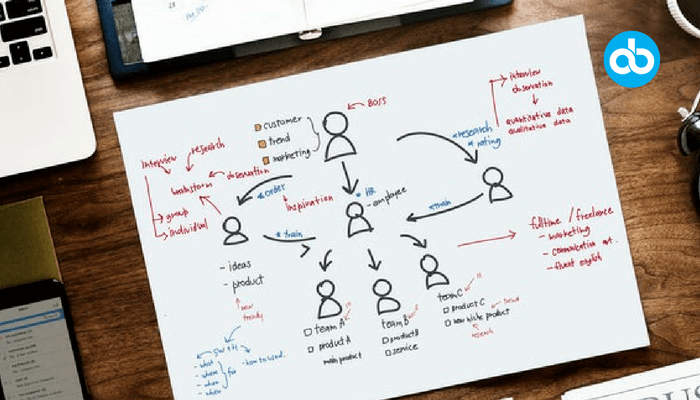 BOSS
customer
trend
marketing
interview
observation
quantitative data
qualitative data
research
rating
interview
research
brainstorm
observation
group
individual
order
inspiration
HR
- employee
train
train
- ideas
- product
new
trendy
fulltime / freelance
- marketing
- communication
- fluent english
team A
product A
main product
team B
product B
service
team C
product C
new niche product
5W + H
- what
- where
- when
- how to used